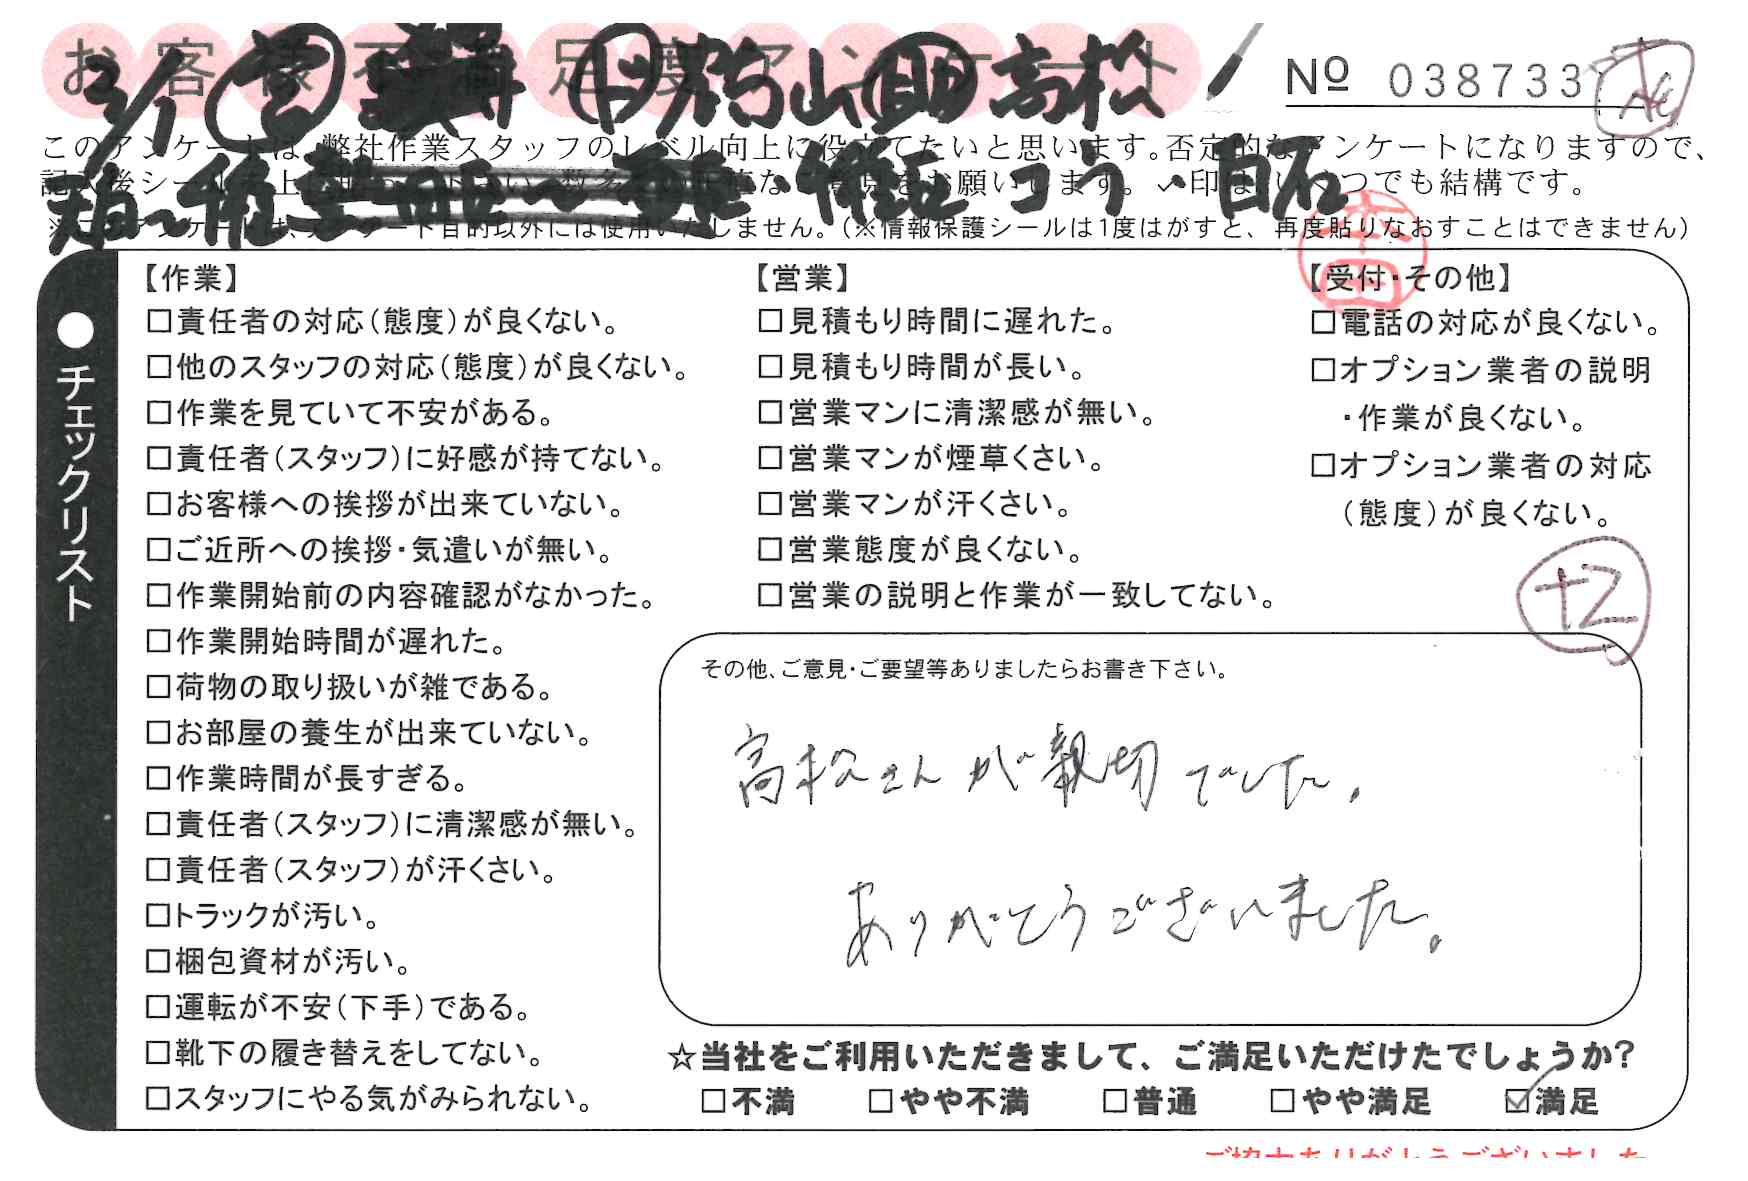 お客様不満足度アンケート
3/1 高松
No 038733
このアンケートは、弊社作業スタッフのレベル向上に役立てたいと思います。否定的なアンケートになりますので、
お願いします。✓印はいくつでも結構です。
※このアンケートは、アンケート目的以外には使用いたしません。(※情報保護シールは1度はがすと、再度貼りなおすことはできません)
白石
●チェックリスト
【作業】
□責任者の対応(態度)が良くない。
□他のスタッフの対応(態度)が良くない。
□作業を見ていて不安がある。
□責任者(スタッフ)に好感が持てない。
□お客様への挨拶が出来ていない。
□ご近所への挨拶・気遣いが無い。
□作業開始前の内容確認がなかった。
□作業開始時間が遅れた。
□荷物の取り扱いが雑である。
□お部屋の養生が出来ていない。
□作業時間が長すぎる。
□責任者(スタッフ)に清潔感が無い。
□責任者(スタッフ)が汗くさい。
□トラックが汚い。
□梱包資材が汚い。
□運転が不安(下手)である。
□靴下の履き替えをしてない。
□スタッフにやる気がみられない。
【営業】
□見積もり時間に遅れた。
□見積もり時間が長い。
□営業マンに清潔感が無い。
□営業マンが煙草くさい。
□営業マンが汗くさい。
□営業態度が良くない。
□営業の説明と作業が一致してない。
【受付・その他】
□電話の対応が良くない。
□オプション業者の説明
・作業が良くない。
□オプション業者の対応
(態度)が良くない。
+2
その他、ご意見・ご要望等ありましたらお書き下さい。
高松さんが親切でした。
ありがとうございました。
☆当社をご利用いただきまして、ご満足いただけたでしょうか?
□不満 □やや不満 □普通 □やや満足 ☑満足
ご協力ありがとうございました